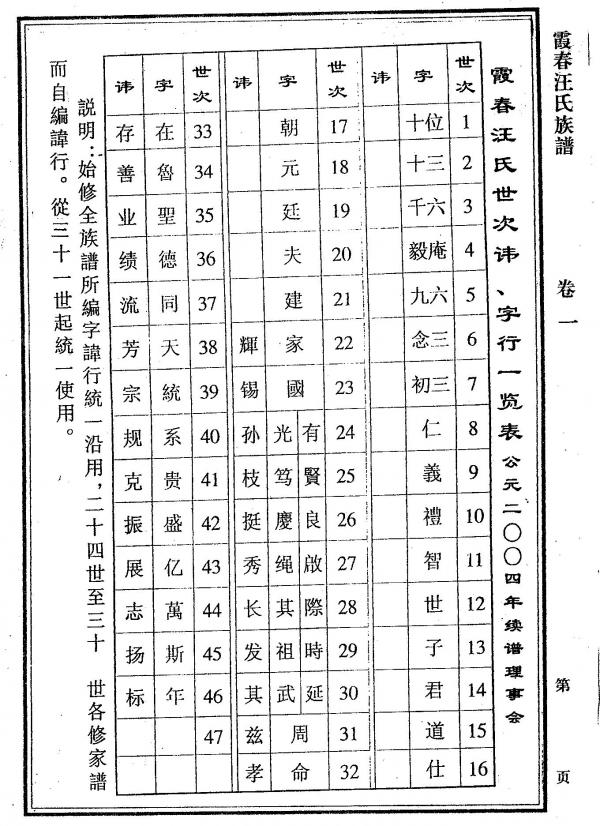 霞春汪氏族譜
卷一
第 页
霞春汪氏世次讳、字行一览表 公元二〇〇四年续谱理事会
世次 字 讳
1 十位
2 十三
3 千六
4 毅庵
5 九六
6 念三
7 初三
8 仁
9 義
10 禮
11 智
12 世
13 子
14 君
15 道
16 仕
世次 字 讳
17 朝
18 元
19 廷
20 夫
21 建
22 家 輝
23 國 锡
24 有 光 孙
25 賢 笃 枝
26 良 慶 挺
27 啟 绳 秀
28 際 其 长
29 時 祖 发
30 延 武 其
31 周 兹
32 命 孝
世次 字 讳
33 在 存
34 魯 善
35 聖 业
36 德 绩
37 同 流
38 天 芳
39 統 宗
40 系 规
41 贵 克
42 盛 振
43 亿 展
44 萬 志
45 斯 扬
46 年 标
47
説明：始修全族譜所編字諱行統一沿用，二十四世至三十 世各修家譜
而自編諱行。從三十一世起統一使用。